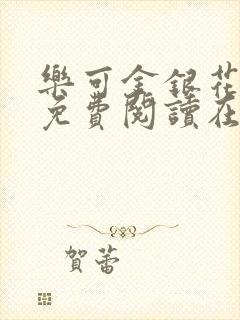 樂可金銀花
免費閱讀在
賀蕾